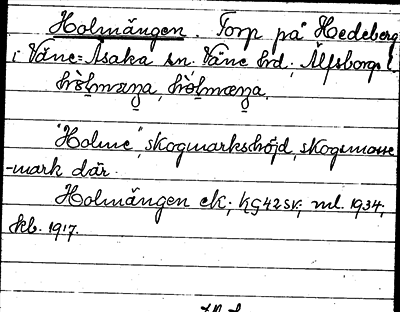 Holmängen. Torp på Hedeberg
i Väne-Åsaka sn. Väne hrd, Älfsborgs l.
"Holme", skogmarkshöjd, skogsmosse
-mark där.
Holmängen ek; kg 42 sv; ml. 1934;
fkb. 1917.